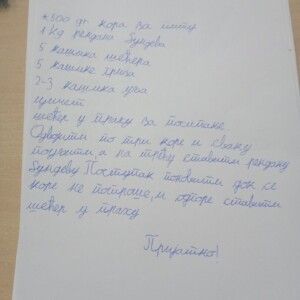 *500 гр кора за питу
1 кг рендане бундеве
5 кашика шећера
5 кашике гриза
2-3 кашика уља
цимет
шећер у праху за посипање
Одвојити по три коре и сваку
поуљити а на трећу ставити рендану
бундеву Поступак поновити док се
коре не потроше, и одгоре ставити
шећер у праху
Пријатно!